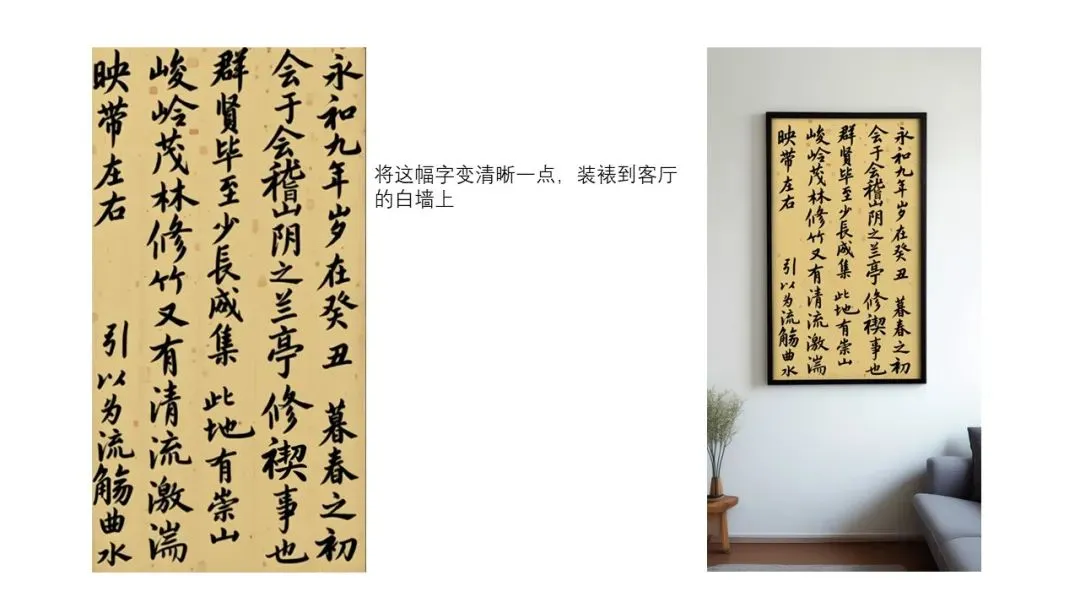 永和九年岁在癸丑 暮春之初
会于会稽山阴之兰亭 修禊事也
群贤毕至少長成集 此地有崇山
峻岭茂林修竹又有清流激湍
映带左右 引以为流觞曲水
将这幅字变清晰一点，装裱到客厅
的白墙上
永和九年岁在癸丑 暮春之初
会于会稽山阴之兰亭 修禊事也
群贤毕至少長成集 此地有崇山
峻岭茂林修竹又有清流激湍
映带左右 引以为流觞曲水